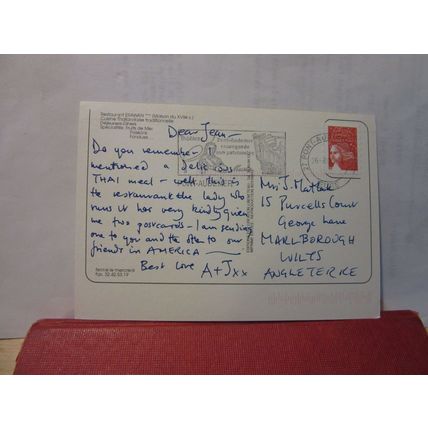 Restaurant ERAWAN *** (Maison du XVIIIe s.)
Cuisine Thaïlandaise traditionnelle
Déjeuners-Dîners
Spécialités: Fruits de Mer
Poissons
Fondues
Dear Jean -
Do you remember I
mentioned a delicious
THAI meal - well this is
the restaurant & the lady who
runs it has very kindly given
me two postcards - I am sending
one to you and the other to our
friends in AMERICA
Best love A+Jxx
fermé le mercredi
Mrs J. Matlak
15 Purcells Court
George Lane
MARLBOROUGH
WILTS
ANGLETERRE